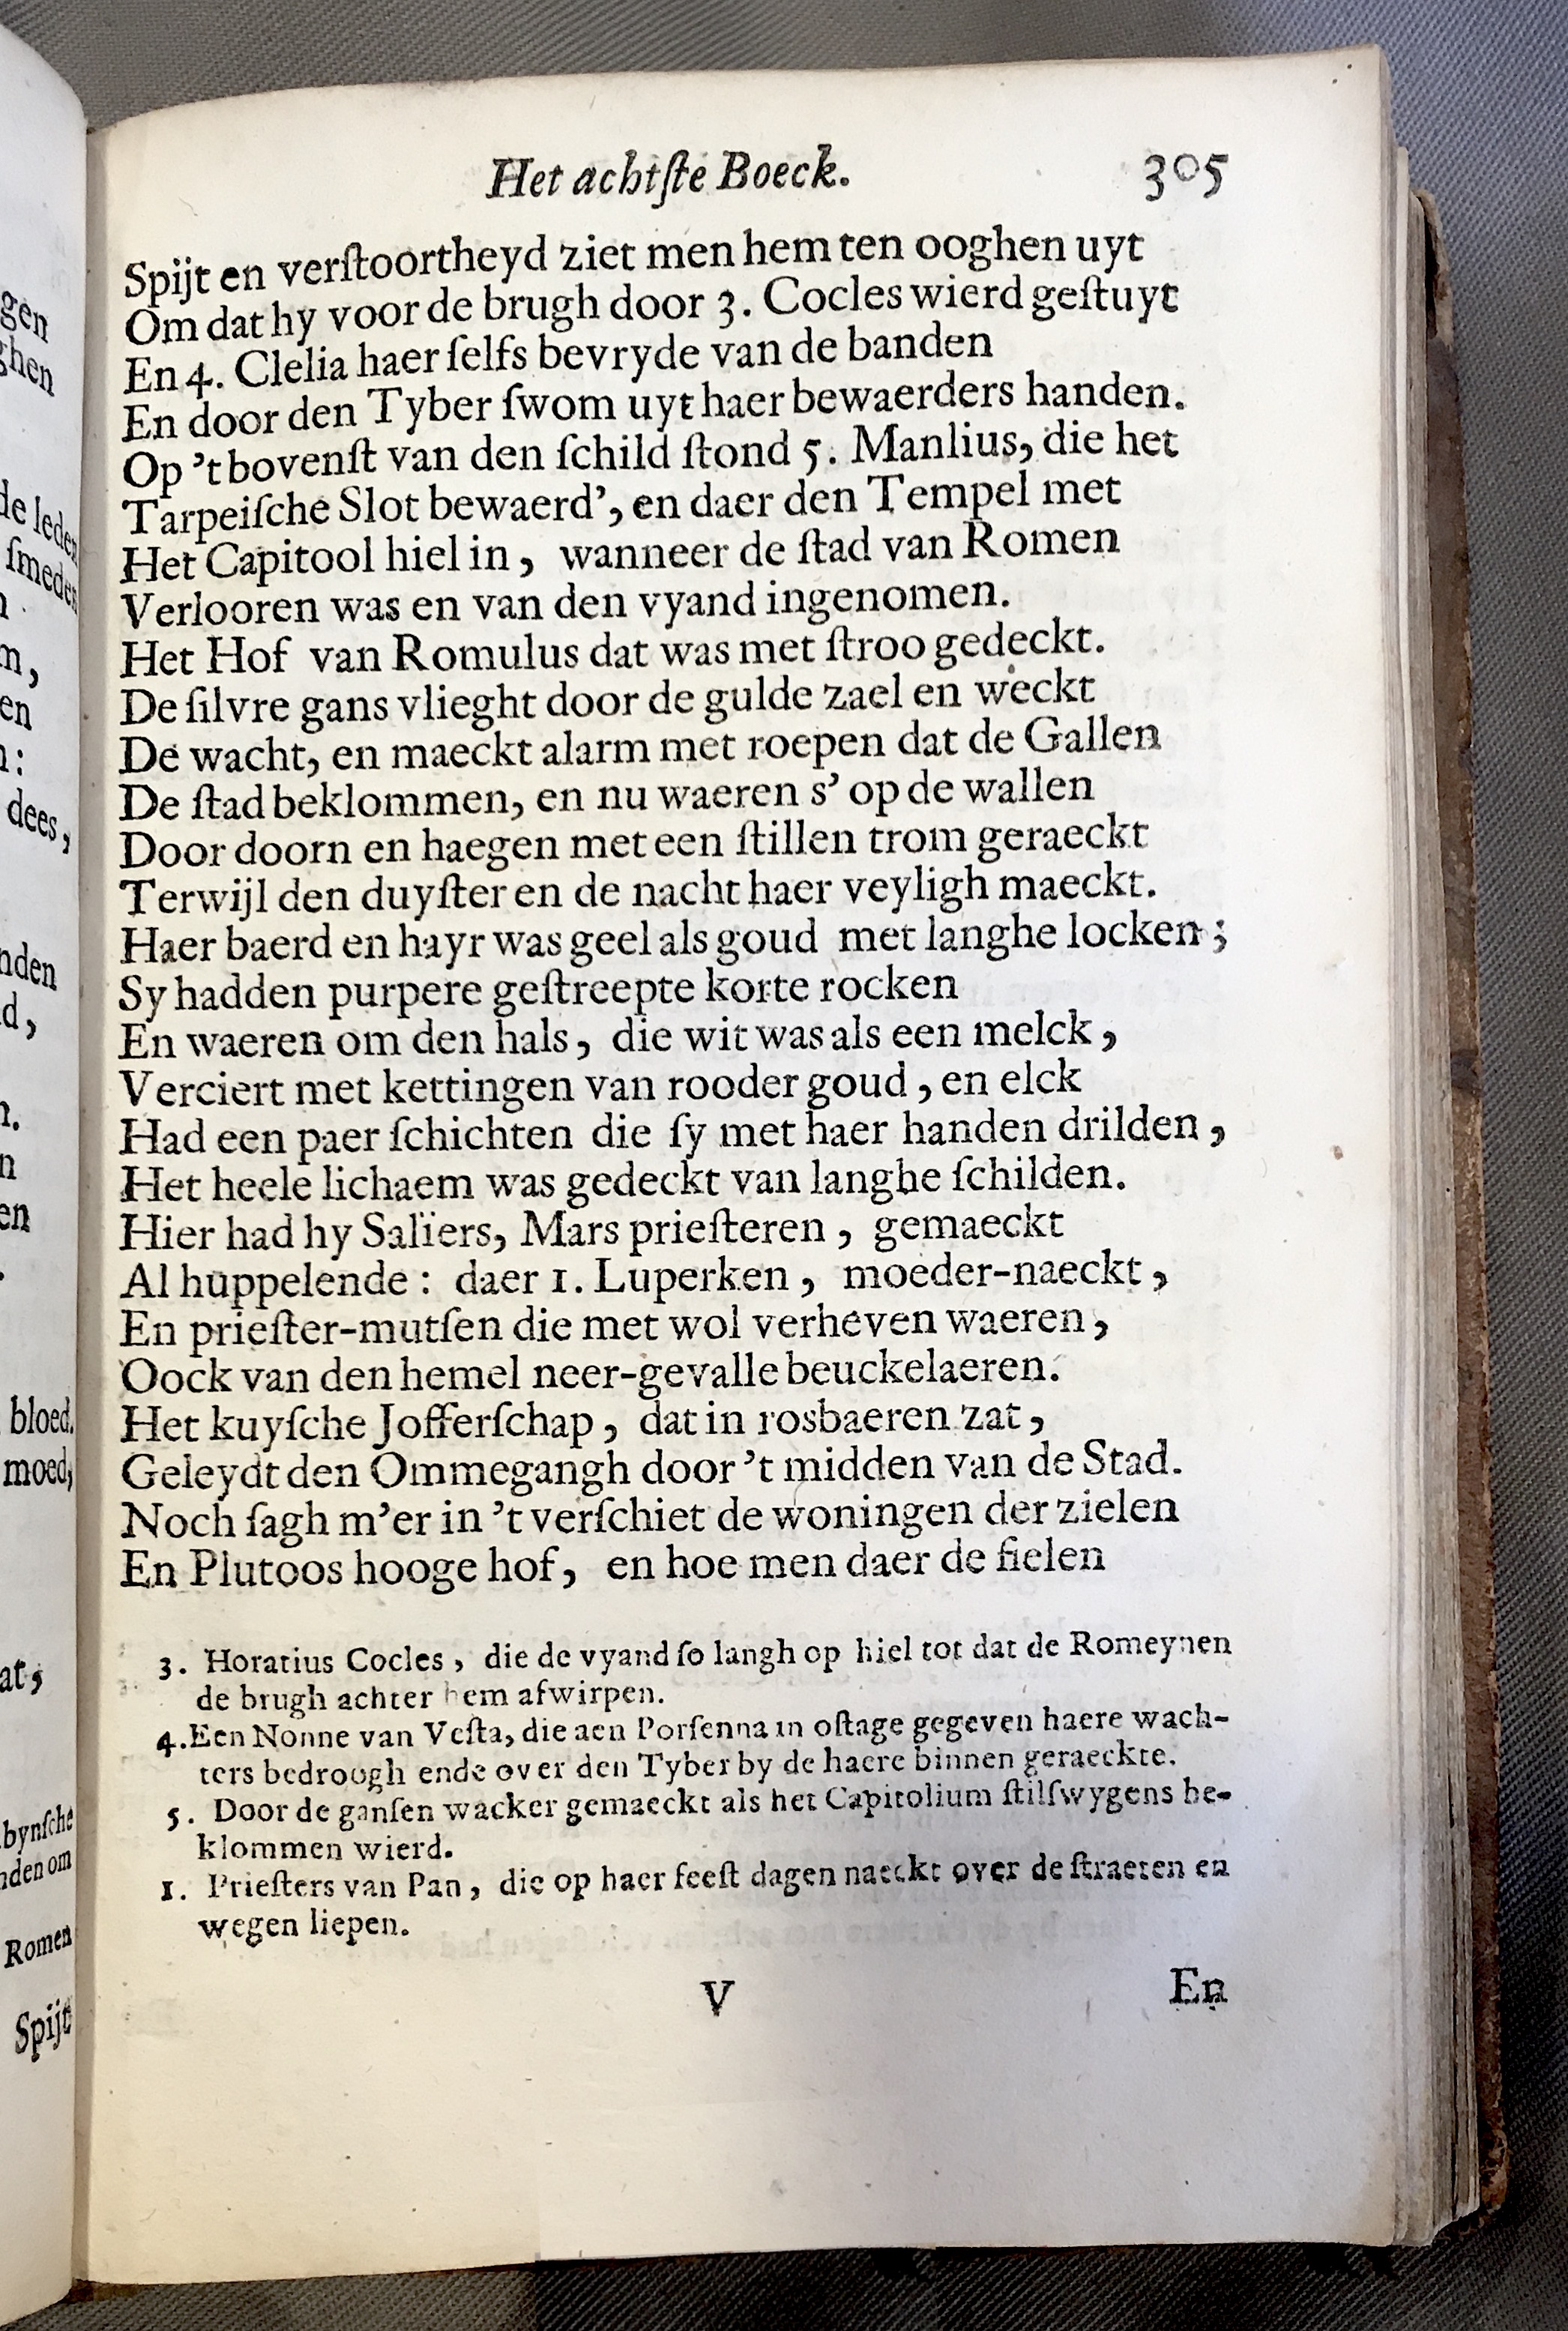 Het achtſte Boeck. 305
Spijt en verſtoortheyd ziet men hem ten ooghen uyt
Om dat hy voor de brugh door 3. Cocles wierd geſtuyt
En 4. Clelia haer ſelfs bevryde van de banden
En door den Tyber ſwom uyt haer bewaerders handen.
Op 't bovenſt van den ſchild ſtond 5. Manlius, die het
Tarpeiſche Slot bewaerd', en daer den Tempel met
Het Capitool hiel in, wanneer de ſtad van Romen
Verlooren was en van den vyand ingenomen.
Het Hof van Romulus dat was met ſtroo gedeckt.
De ſilvre gans vlieght door de gulde zael en weckt
De wacht, en maeckt alarm met roepen dat de Gallen
De ſtad beklommen, en nu waeren s' op de wallen
Door doorn en haegen met een ſtillen trom geraeckt
Terwijl den duyſter en de nacht haer veyligh maeckt.
Haer baerd en hayr was geel als goud met langhe locken;
Sy hadden purpere geſtreepte korte rocken
En waeren om den hals, die wit was als een melck,
Verciert met kettingen van rooder goud, en elck
Had een paer ſchichten die ſy met haer handen drilden,
Het heele lichaem was gedeckt van langhe ſchilden.
Hier had hy Saliers, Mars prieſteren, gemaeckt
Al huppelende: daer 1. Luperken, moeder-naeckt,
En prieſter-mutſen die met wol verheven waeren,
Oock van den hemel neer-gevalle beuckelaeren.
Het kuyſche Jofferſchap, dat in rosbaeren zat,
Geleydt den Ommegangh door 't midden van de Stad.
Noch ſagh m'er in 't verſchiet de woningen der zielen
En Plutoos hooge hof, en hoe men daer de fielen
3. Horatius Cocles, die de vyand ſo langh op hiel tot dat de Romeynen
de brugh achter hem afwirpen.
4. Een Nonne van Veſta, die aen Porſenna in oſtage gegeven haere wach-
ters bedroogh ende over den Tyber by de haere binnen geraeckte.
5. Door de ganſen wacker gemaeckt als het Capitolium ſtilſwygens be-
klommen wierd.
1. Prieſters van Pan, die op haer feeſt dagen naeckt over de ſtraeten en
wegen liepen.
V En